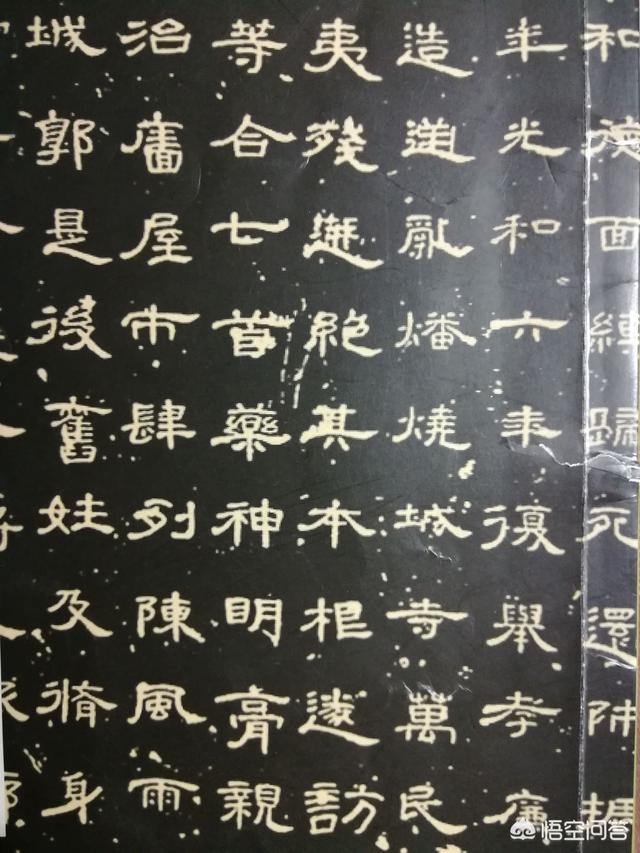 和德面縛歸死還師振
年光和六年復舉孝廉
造逆亂燔燒城寺萬民
夷殘迸絕其本根遂訪
等合七首藥神明膏親
治廧屋市肆列陳風雨
城郭是後舊姓及脩身
悟空问答